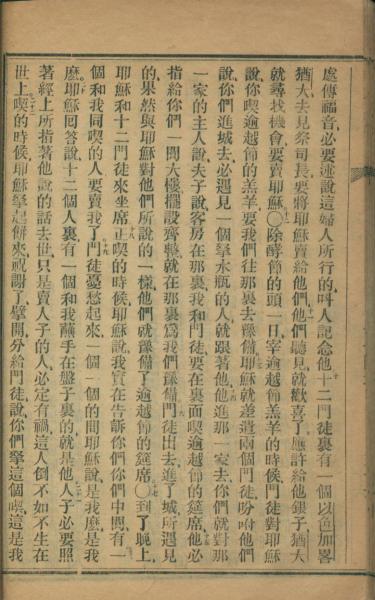 處傳福音、必要述說這婦人所行的、叫人記念他十二門徒裏有一個以色加畧
猶大、去見祭司長、要將耶穌賣給他們、他們聽見就歡喜了、應許給他銀子、猶大
就尋找機會、要賣耶穌○除酵節的頭一日、宰逾越節羔羊的時候、門徒對耶穌
說、你喫逾越節的羔羊、要我們往那裏去豫備、耶穌就差遣兩個門徒、吩咐他們
說、你們進城去、必遇見一個拏水瓶的人、就跟著他、他進那一家去、你們就對那
一家的主人說、夫子說、客房在那裏、我和門徒要在裏面喫逾越節的筵席、他必
指給你們一間大樓、擺設齊整、就在那裏爲我們豫備、門徒出去、進了城、所遇見
的果然與耶穌對他們所說的一樣、他們就豫備了逾越節的筵席、○到了晚上、
耶穌和十二門徒來坐席、正喫的時候、耶穌說、我實在告訴你們、你們中間有一
個和我同喫的人、要賣我了、門徒憂愁起來、一個一個的問耶穌說、是我麽、是我
麽、耶穌回答說、十二個人裏、有一個和我蘸手在盤子裏的就是他、人子必要照
著經上所指著他說的話去世、只是賣人子的人、必定有禍、這人倒不如不生在
世上、喫的時候、耶穌拏起餅來、祝謝了、擘開分給門徒說、你們拏這個喫、這是我